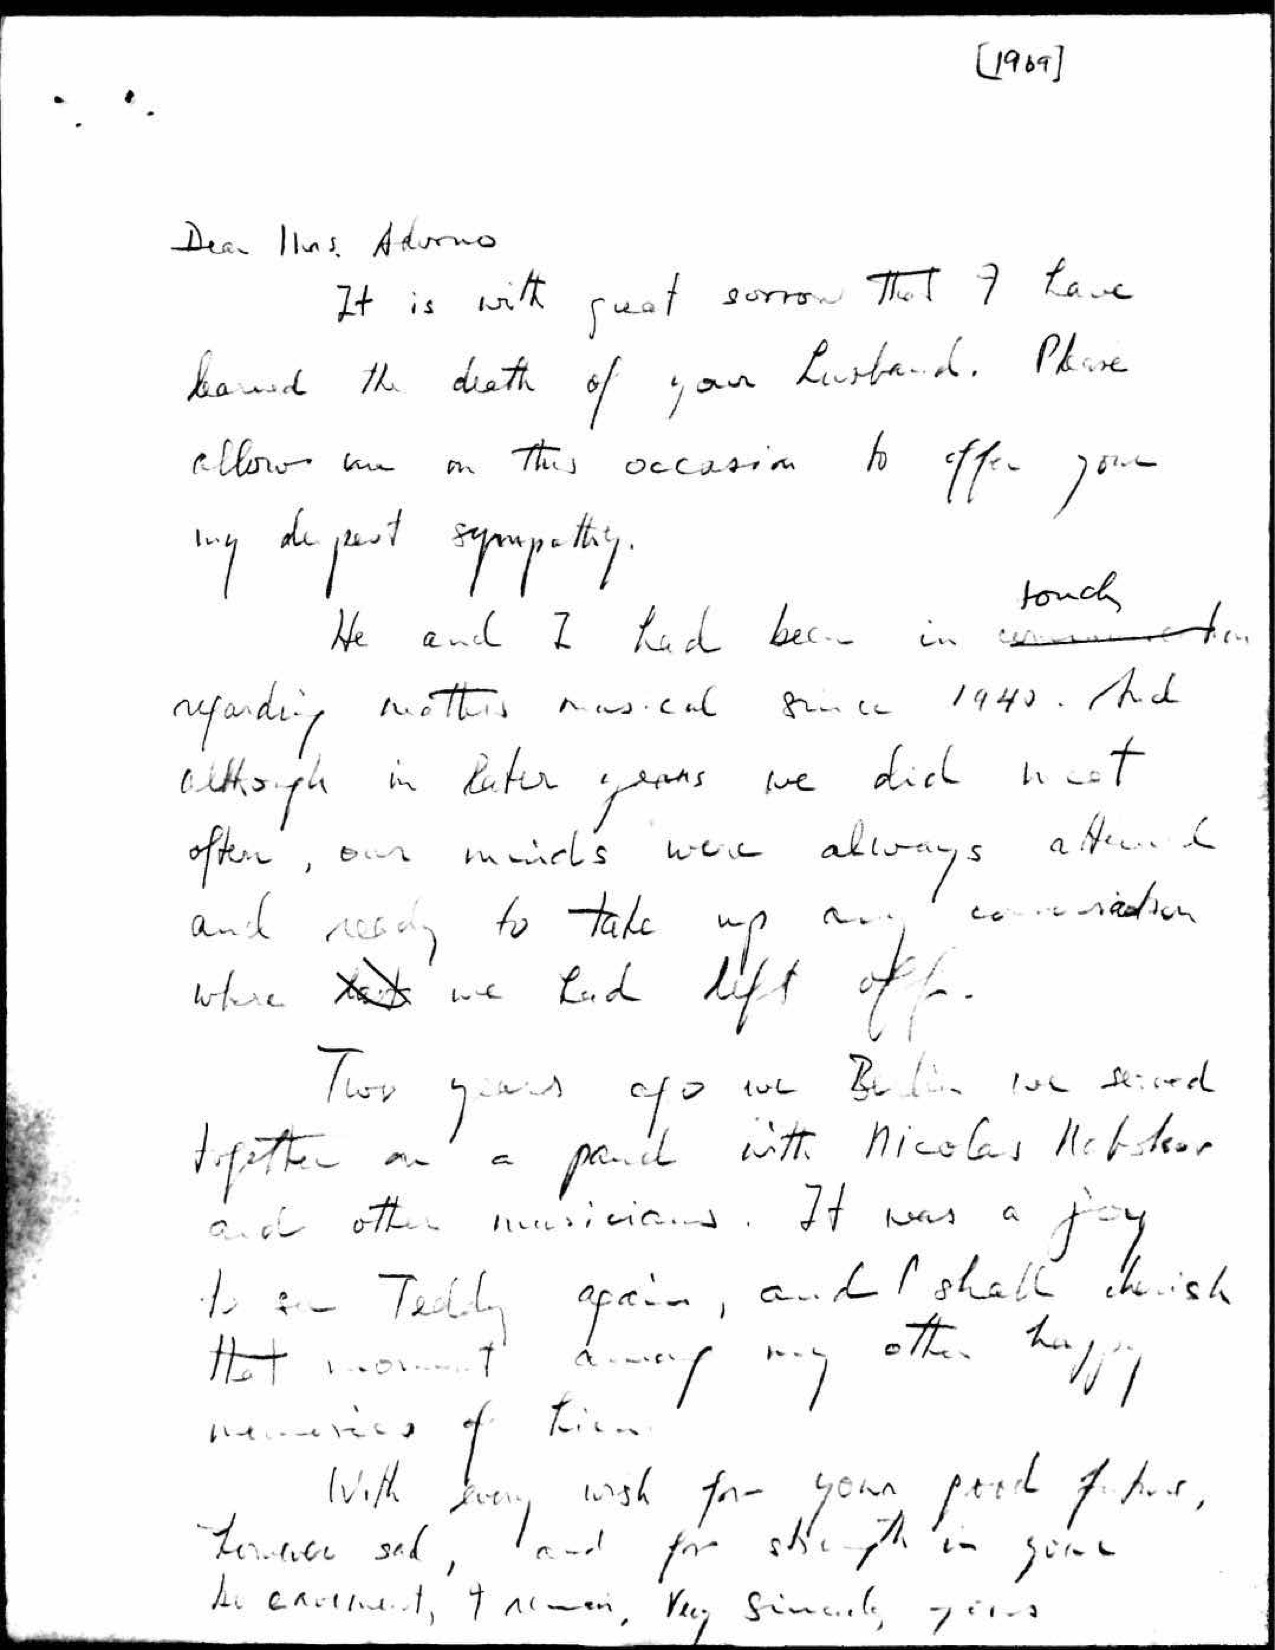 [1969]
Dear Mrs. Adorno
It is with great sorrow that I have
learned the death of your husband. Please
allow me on this occasion to offer you
my deepest sympathy.
touch
He and I had been in
regarding matters musical since 1940. And
although in later years we did meet
often, our minds were always attuned
and ready to take up any conversation
where we had left off.
Two years ago we Berlin we served
together on a panel with Nicolas Nabokov
and other musicians. It was a joy
to see Teddy again, and I shall cherish
that moment among my other happy
memories of him.
With every wish for your good future,
however sad, and for strength in your
bereavement, I remain, Very Sincerely yours